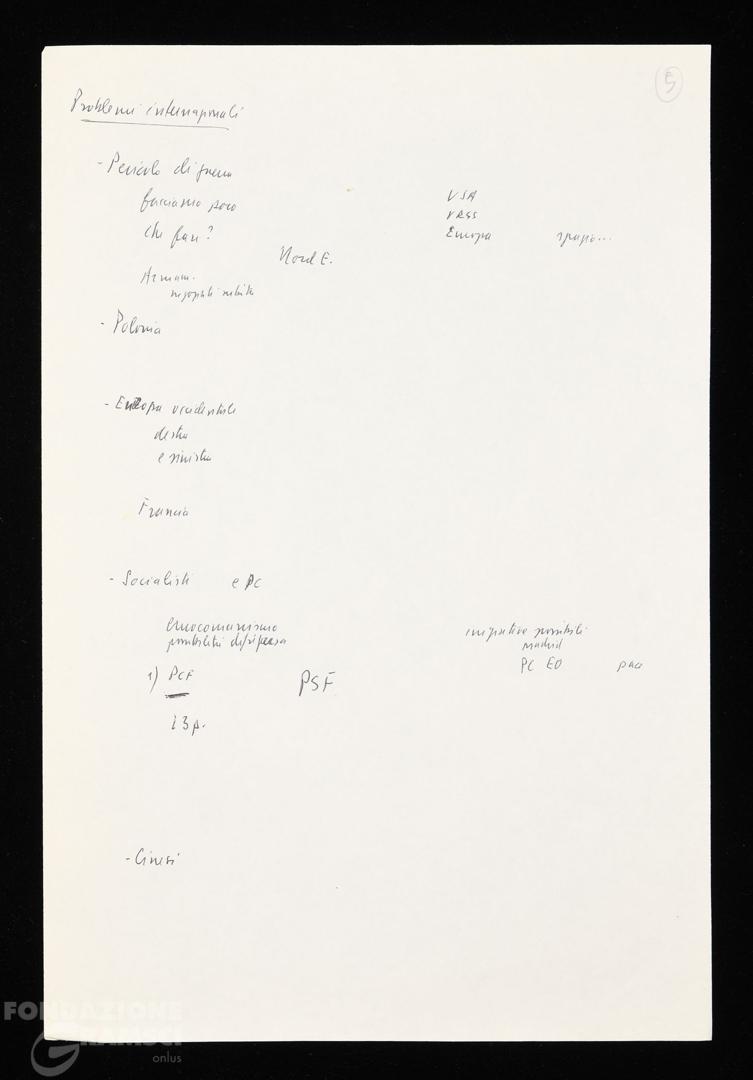 5
Problemi internazionali
- Pericolo di guerra
facciamo poco
che fare?
USA
URSS
Europa
Nord E.
Armam.
- Polonia
- Europa occidentale
destra
e sinistra
Francia
- Socialisti e PC
eurocomunismo
possibilità di ripresa
iniziative possibili
Madrid
PC EO pace
1) PCF PSF
i 3 p.
- Cinesi
FONDAZIONE
GRAMSCI
onlus